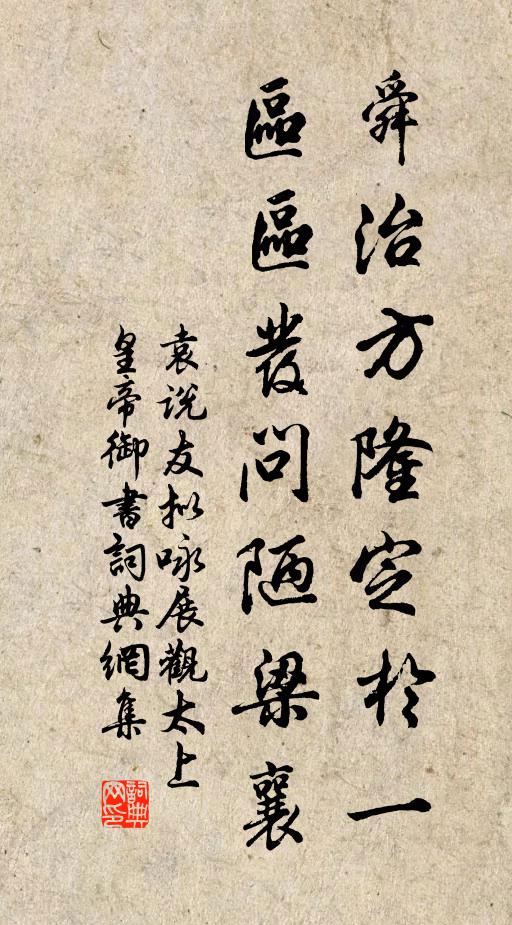 舜治方隆定於一
區區發問陋梁襄
袁说友拟咏展觀太上
皇帝御書詞典網集
詞典网印